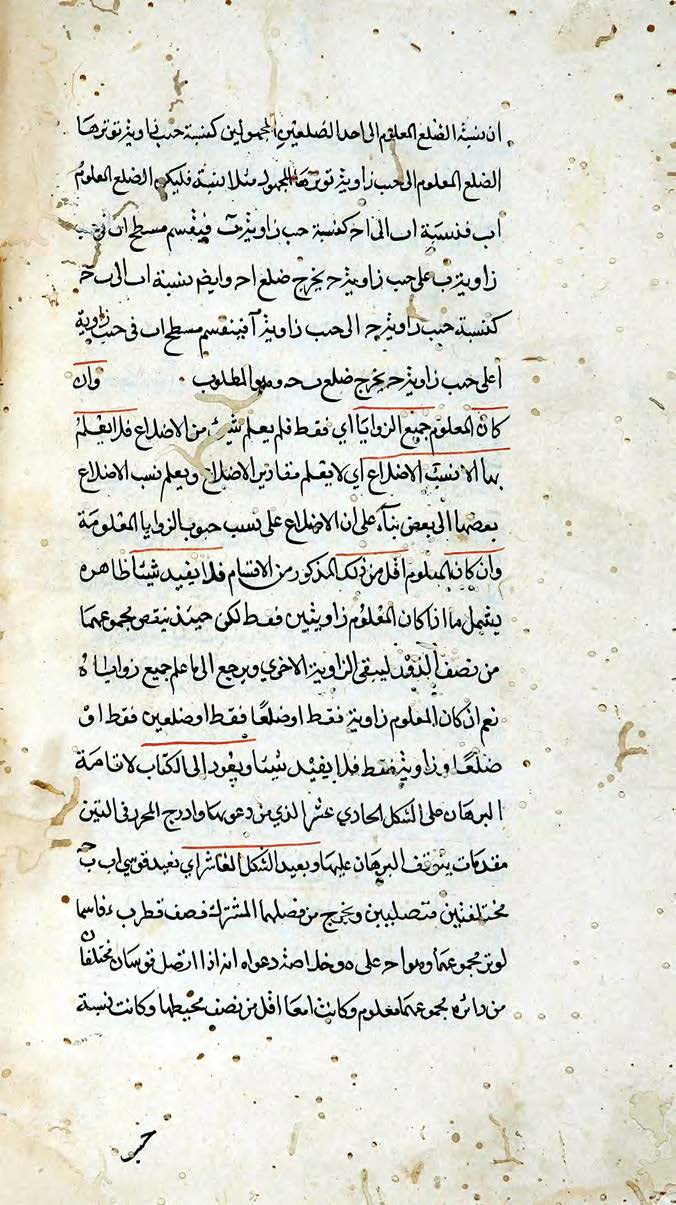 ان نسبة الضلع المعلوم الى احد الضلعين المجهولين كنسبة جيب زاوية توترها
الضلع المعلوم الى جيب زاوية توترها المجهول مثلا نسبة فليكن الضلع المعلوم
اب فنسبة اب الى اح كنسبة جيب زاوية فيقسم مسطح اب في جيب
زاوية ب على جيب زاوية ح يخرج ضلع اح وايضم نسبة اب الى ب ح
كنسبة جيب زاوية ح الى جيب زاوية آ فينقسم مسطح اب في جيب زاوية
ا على جيب زاوية ح يخرج ضلع ب ح وهو المطلوب وان
كان المعلوم جميع الزوايا اي فقط فلم يعلم شئ من الاضلاع فلا يعلم
بها الا نسب الاضلاع اي لا يعلم مقادير الاضلاع ويعلم نسب الاضلاع
بعضها الى بعض بناء على ان الاضلاع على نسب جيوب الزوايا المعلومة
وان كان المعلوم اقل من ذلك المذكور من الاقسام فلا يفيد شيئا ظاهره
يشمل ما اذا كان المعلوم زاويتين فقط لكن حينئذ ينقص مجموعهما
من نصف الدور ليبقى الزاوية الاخرى ويرجع الى ما علم جميع زواياه
نعم ان كان المعلوم زاوية فقط او ضلعا فقط او ضلعين فقط او
ضلعا وزاوية فقط فلا يفيد شيئا ويعود الى الكتاب لاقامة
البرهان على الشكل الحادي عشر الذي من دعوها وادرج المحرر في البين
مقدمات يتوقف البرهان عليها ويعيد الشكل العاشر اي نعيد قوسي اب ب ح
مختلفتين متصلتين ويخرج من فصلهما المشترك نصف قطر ب ء قاسما
لوتر مجموعهما وهو اح على ه وخلاصة دعواه انه اذا اتصل قوسان مختلفان
من دائره مجموعهما معلوم وكانت امعا اقل من نصف محيطها وكانت نسبة
جيب